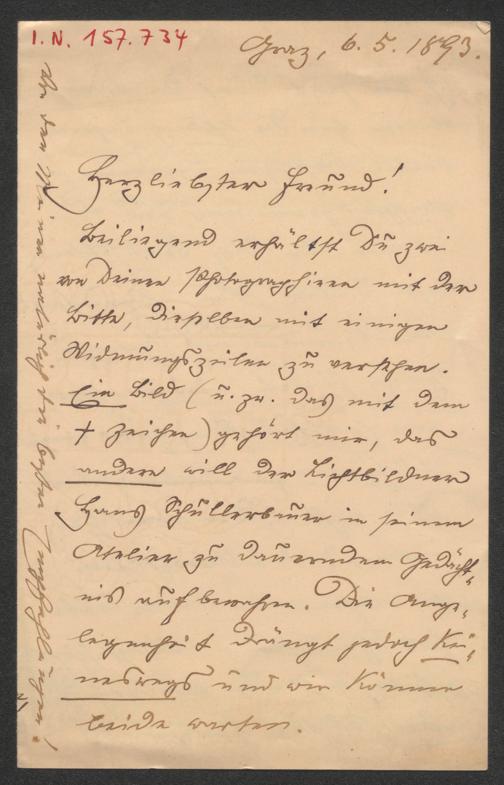 I.N. 157.734
Graz, 6. 5. 1893.
Herzliebster Freund!
Beiliegend erhältst Du zwei
von Deinen Photographieen mit der
Bitte, dieselben mit einigen
Widmungszeilen zu versehen.
Ein Bild (u. zw. das mit dem
+ Zeichen) gehört mir, das
andere will der Lichtbildner
Hans Schullerbauer in seinem
Atelier zu dauerndem Gedächt-
nis aufbewahren. Die Ange-
legenheit drängt jedoch kei-
neswegs und wir können
beide warten.
An den Deinen die besten Empfehlungen!